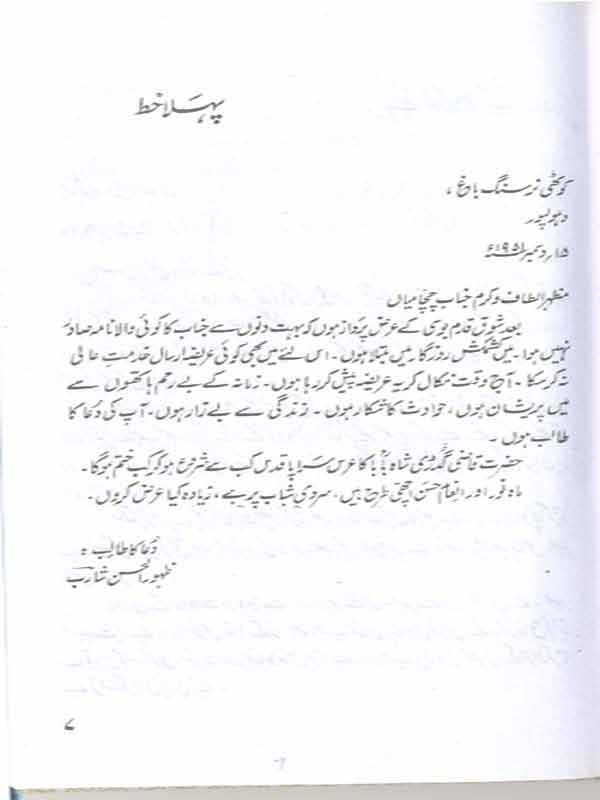 پہلا خط
کوٹھی نرسنگ باغ ،
دھولپور
۱۵؍ دسمبر ۱۹۵۱ء
مظہر الطاف وکرم جناب چچا میاں
بعد شوق قدم بوسی کے عرض پرداز ہوں کہ بہت دنوں سے جناب کا کوئی والا نامہ صادر
نہیں ہوا۔ میں کشمکش روزگار میں مبتلا ہوں۔ اس لئے میں بھی کوئی عریضہ ارسال خدمتِ عالی
نہ کرسکا۔ آج وقت نکال کر یہ عریضہ پیش کر رہا ہوں۔ زمانہ کے بے رحم ہاتھوں سے
میں پریشان ہوں ، حوادث کا شکار ہوں ۔ زندگی سے بے زار ہوں۔ آپ کی دُعا کا
طالب ہوں ۔
حضرت قاضی گدڑی شاہ باباؒ کا عرس سراپا قدس کب سے شروع ہو کر کب ختم ہوگا۔
ماہ نور اور انعام حسن اچھی طرح ہیں، سردی شباب پر ہے ، زیادہ کیا عرض کروں۔
دُعا کا طالب ہ
ظہور الحسن شارب
۷